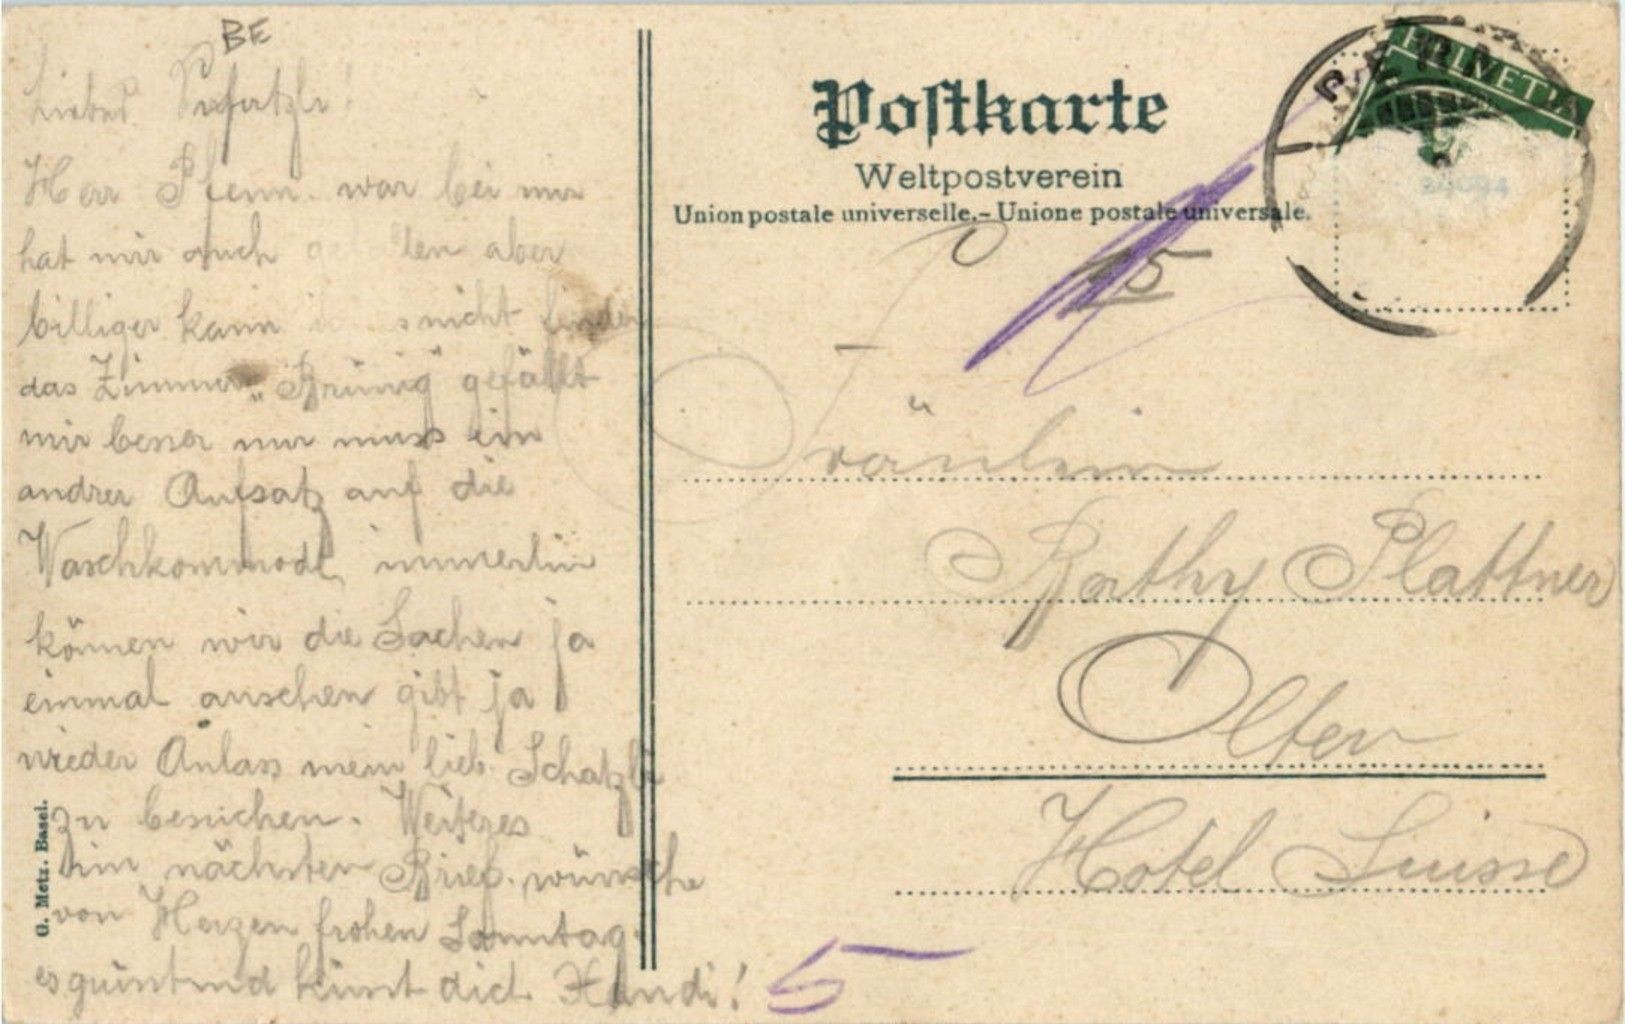 BE
Liebes
Herr Pfenn. war bei mir
hat mir auch aber
billiger kann nicht finden
das Zimmer „Brünig" gefällt
mir besser nur muss ein
andrer Aufsatz auf die
Waschkommode, immerhin
können wir die Sachen ja
einmal ansehen gibt ja
wieder Anlass mein lieb. Schatzli
zu besuchen. Weiteres
im nächsten Brief. wünsche
von Herzen frohen Sonntag.
es grüsst und küsst dich Handi!
G. Metz. Basel.
Postkarte
Weltpostverein
Union postale universelle.– Unione postale universale.
HELVETIA
BERN
15
Fräulein
Kathy Plattner
Olten
Hotel Suisse
5